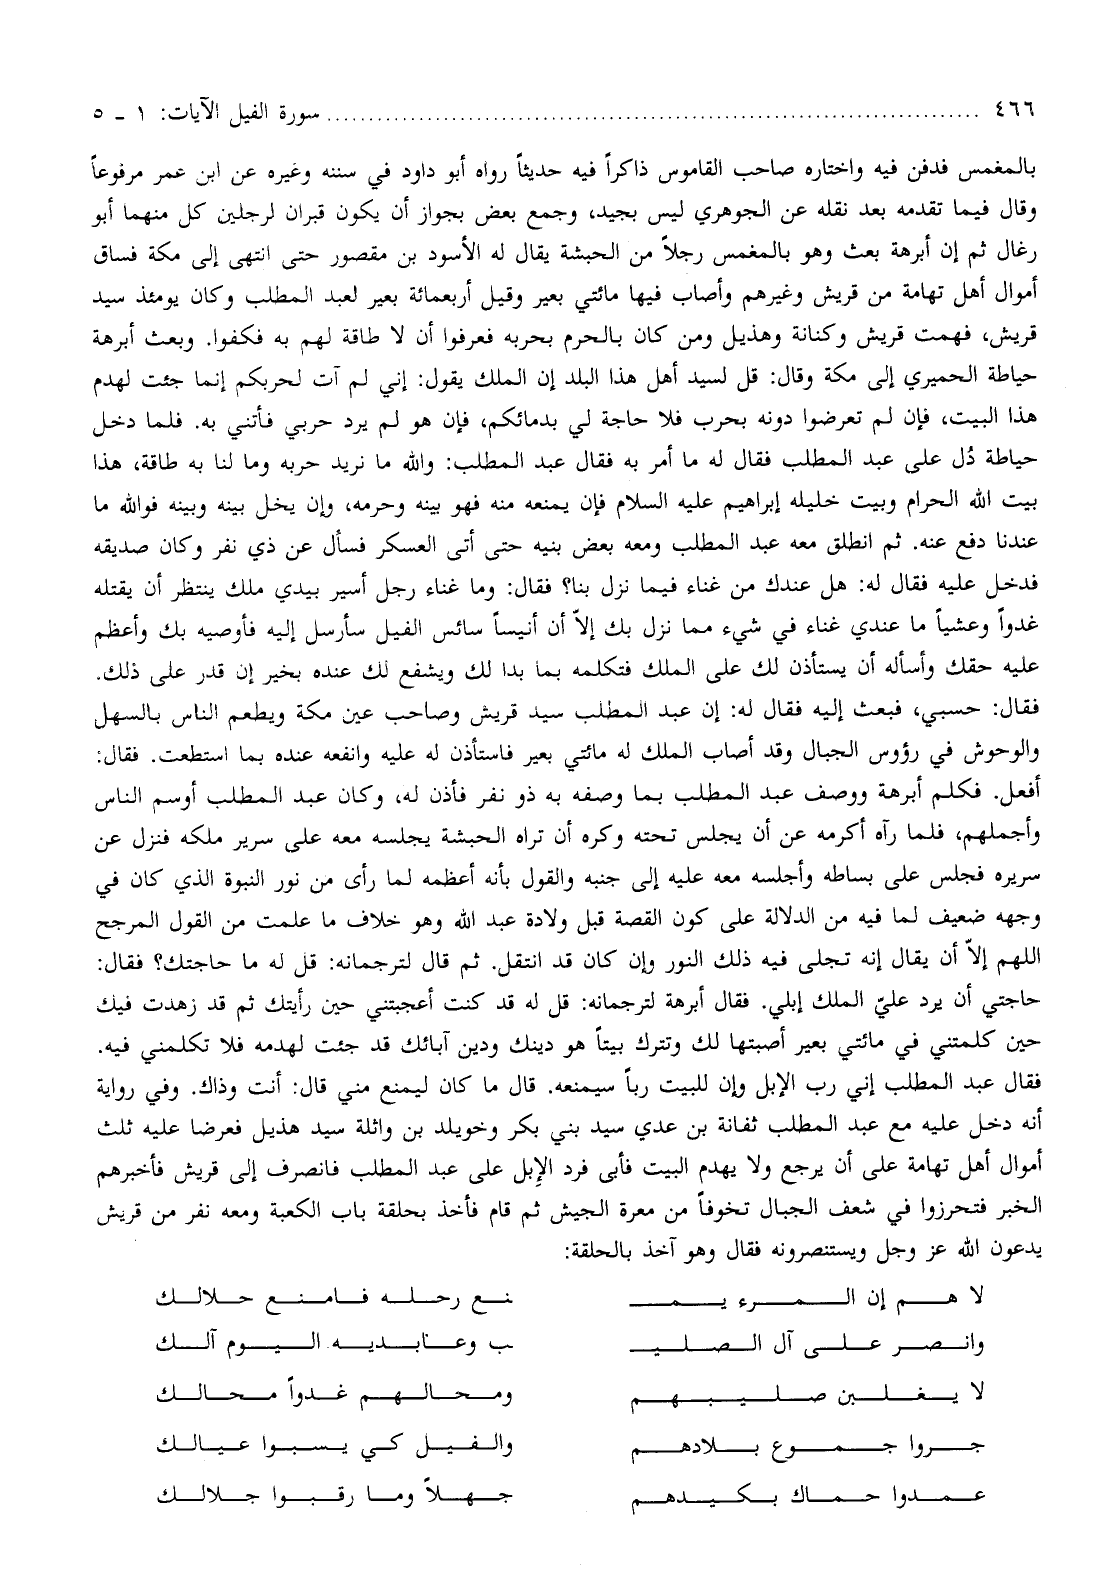 ٤٦٦ ........................ سورة الفيل الآيات: ١ ـ ٥
بالمغمس فدفن فيه واختاره صاحب القاموس ذاكراً فيه حديثاً رواه أبو داود في سننه وغيره عن ابن عمر مرفوعاً
وقال فيما تقدمه بعد نقله عن الجوهري ليس بجيد، وجمع بعض بجواز أن يكون قبران لرجلين كل منهما أبو
رغال ثم إن أبرهة بعث وهو بالمغمس رجلاً من الحبشة يقال له الأسود بن مقصور حتى انتهى إلى مكة فساق
أموال أهل تهامة من قريش وغيرهم وأصاب فيها مائتي بعير وقيل أربعمائة بعير لعبد المطلب وكان يومئذ سيد
قريش، فهمت قريش وكنانة وهذيل ومن كان بالحرم بحربه فعرفوا أن لا طاقة لهم به فكفوا. وبعث أبرهة
حياطة الحميري إلى مكة وقال: قل لسيد أهل هذا البلد إن الملك يقول: إني لم آت لحربكم إنما جئت لهدم
هذا البيت، فإن لم تعرضوا دونه بحرب فلا حاجة لي بدمائكم، فإن هو لم يرد حربي فأتني به. فلما دخل
حياطة دُل على عبد المطلب فقال له ما أمر به فقال عبد المطلب: والله ما نريد حربه وما لنا به طاقة، هذا
بيت الله الحرام وبيت خليله إبراهيم عليه السلام فإن يمنعه منه فهو بيته وحرمه، وإن يخل بينه وبينه فوالله ما
عندنا دفع عنه. ثم انطلق معه عبد المطلب ومعه بعض بنيه حتى أتى العسكر فسأل عن ذي نفر وكان صديقه
فدخل عليه فقال له: هل عندك من غناء فيما نزل بنا؟ فقال: وما غناء رجل أسير بيدي ملك ينتظر أن يقتله
غدواً وعشياً ما عندي غناء في شيء مما نزل بك إلاّ أن أنيساً سائس الفيل سأرسل إليه فأوصيه بك وأعظم
عليه حقك وأسأله أن يستأذن لك على الملك فتكلمه بما بدا لك ويشفع لك عنده بخير إن قدر على ذلك.
فقال: حسبي، فبعث إليه فقال له: إن عبد المطلب سيد قريش وصاحب عين مكة ويطعم الناس بالسهل
والوحوش في رؤوس الجبال وقد أصاب الملك له مائتي بعير فاستأذن له عليه وانفعه عنده بما استطعت. فقال:
أفعل. فكلم أبرهة ووصف عبد المطلب بما وصفه به ذو نفر فأذن له، وكان عبد المطلب أوسم الناس
وأجملهم، فلما رآه أكرمه عن أن يجلس تحته وكره أن تراه الحبشة يجلسه معه على سرير ملكه فنزل عن
سريره فجلس على بساطه وأجلسه معه عليه إلى جنبه والقول بأنه أعظمه لما رأى من نور النبوة الذي كان في
وجهه ضعيف لما فيه من الدلالة على كون القصة قبل ولادة عبد الله وهو خلاف ما علمت من القول المرجح
اللهم إلاّ أن يقال إنه تجلى فيه ذلك النور وإن كان قد انتقل. ثم قال لترجمانه: قل له ما حاجتك؟ فقال:
حاجتي أن يرد عليّ الملك إبلي. فقال أبرهة لترجمانه: قل له قد كنت أعجبتني حين رأيتك ثم قد زهدت فيك
حين كلمتني في مائتي بعير أصبتها لك وتترك بيتاً هو دينك ودين آبائك قد جئت لهدمه فلا تكلمني فيه.
فقال عبد المطلب إني رب الإبل وإن للبيت رباً سيمنعه. قال ما كان ليمنع مني قال: أنت وذاك. وفي رواية
أنه دخل عليه مع عبد المطلب ثفانة بن عدي سيد بني بكر وخويلد بن واثلة سيد هذيل فعرضا عليه ثلث
أموال أهل تهامة على أن يرجع ولا يهدم البيت فأبى فرد الإبل على عبد المطلب فانصرف إلى قريش فأخبرهم
الخبر فتحرزوا في شعف الجبال تخوفاً من معرة الجيش ثم قام فأخذ بحلقة باب الكعبة ومعه نفر من قريش
يدعون الله عز وجل ويستنصرونه فقال وهو آخذ بالحلقة:
لا هم إن المرء يمـ ـنع رحله فامنع حلالك
وانصر على آل الصليـ ـب وعابديه اليوم آلك
لا يغلبن صليبهم ومحالهم غدواً محالك
جروا جموع بلادهم والفيل كي يسبوا عيالك
عمدوا حماك بكيدهم جهلاً وما رقبوا جلالك